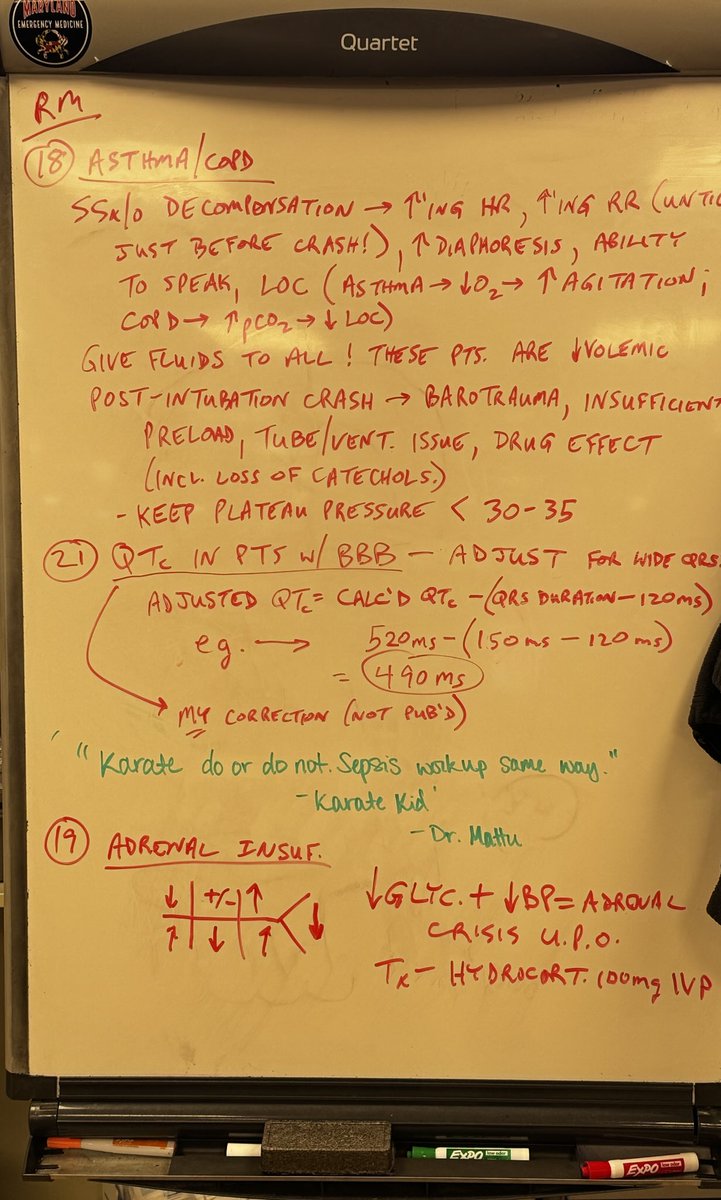 MARYLAND
EMERGENCY MEDICINE
Quartet
RM
18 ASTHMA/COPD
SSx/o DECOMPENSATION → ↑'ING HR, ↑'ING RR (UNTIL
JUST BEFORE CRASH!), ↑DIAPHORESIS, ABILITY
TO SPEAK, LOC (ASTHMA→↓O₂→ ↑AGITATION;
COPD→ ↑pCO₂→↓LOC)
GIVE FLUIDS TO ALL! THESE PTS. ARE ↓VOLEMIC
POST-INTUBATION CRASH → BAROTRAUMA, INSUFFICIENT
PRELOAD, TUBE/VENT. ISSUE, DRUG EFFECT
(INCL. LOSS OF CATECHOLS.)
- KEEP PLATEAU PRESSURE < 30-35
21 QTc IN PTS W/ BBB — ADJUST FOR WIDE QRS.
ADJUSTED QTc= CALC'D QTc -(QRS DURATION-120ms)
eg. → 520ms-(150ms-120ms)
= 490ms
MY CORRECTION (NOT PUB'D)
"Karate do or do not. Sepsis workup same way."
-Karate Kid
-Dr. Mattu
19 ADRENAL INSUF.
↓ +/- ↑ ↓
↑ ↓ ↑
↓GLYC. + ↓BP= ADRENAL
CRISIS U.P.O.
Tx - HYDROCORT. 100mg IVP
EXPO low odor
EXPO low odor